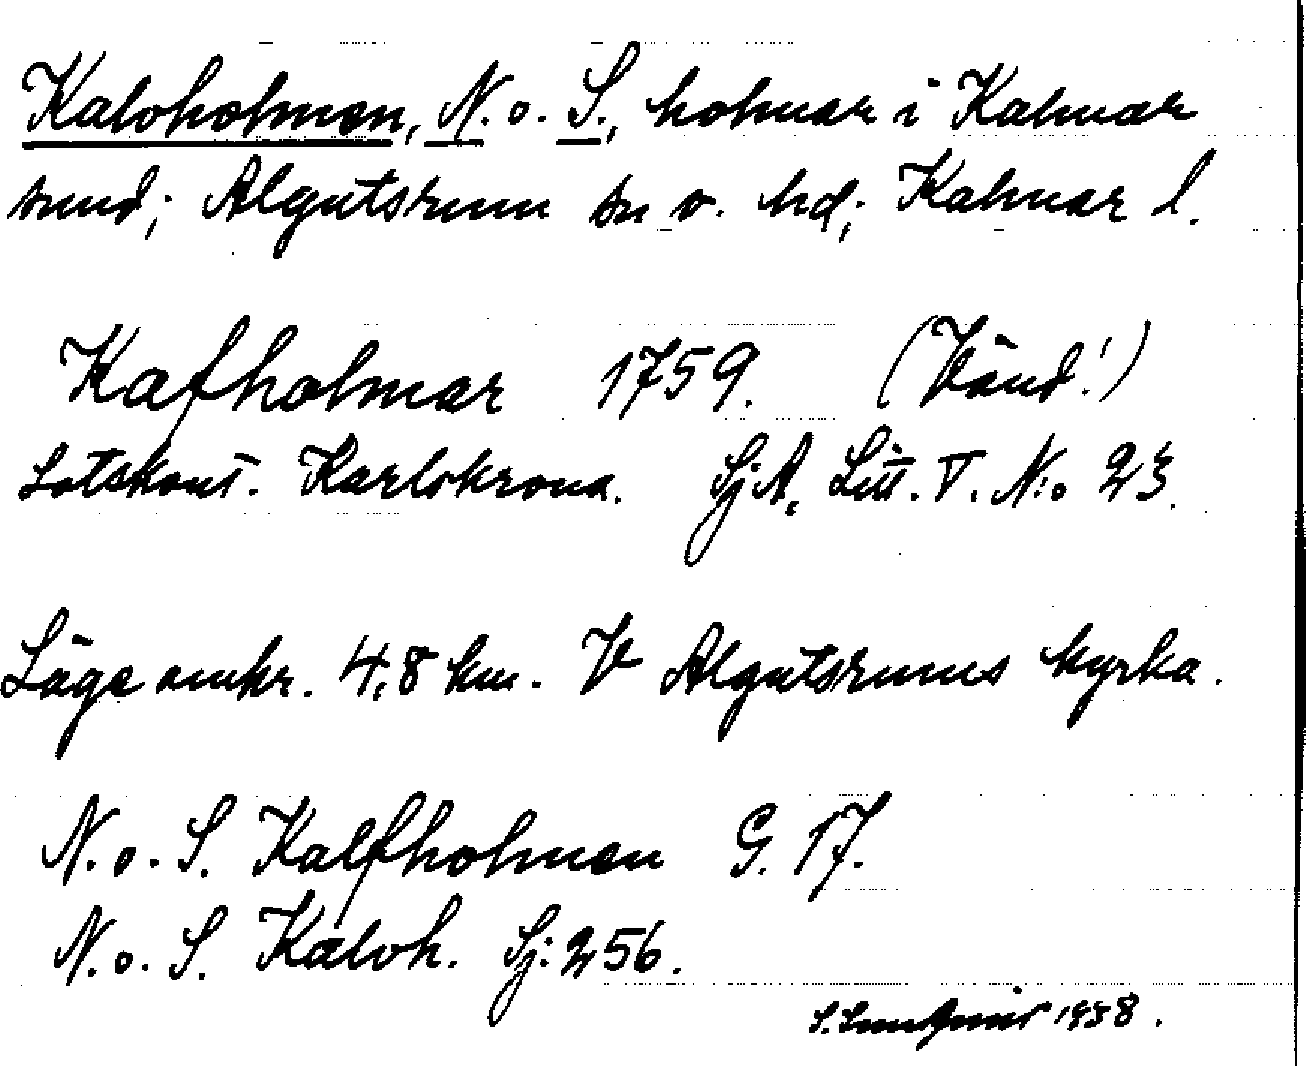 Kalvholmen, N. o. S., holmar i Kalmar
sund; Algutsrum sn o. hd; Kalmar l.
Kafholmar 1759. (Vänd!)
Lotskont. Karlskrona. SjA, Litt. V. N:o 23.
Läge omkr. 4,8 km. V Algutsrums kyrka.
N. o. S. Kalfholmen G. 17.
N. o. S. Kalvh. Sj: 256.
S. 1938.